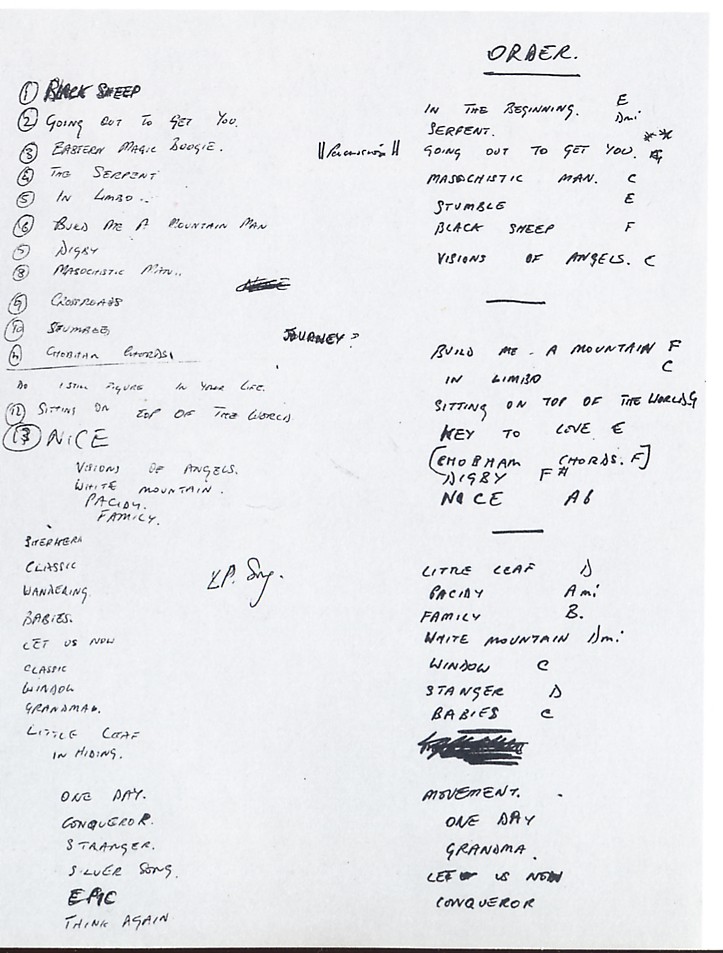 ① BLACK SHEEP
② GOING OUT TO GET YOU.
③ EASTERN MAGIC BOOGIE.
④ THE SERPENT
⑤ IN LIMBO..
⑥ BUILD ME A MOUNTAIN MAN
⑦ DIGBY
⑧ MASOCHISTIC MAN..
⑨ CROSSROADS
⑩ STUMBLE
JOURNEY?
⑪ CHOBHAM CHORDS
DO I STILL FIGURE IN YOUR LIFE.
⑫ SITTING ON TOP OF THE WORLD
⑬ NICE
VISIONS OF ANGELS.
WHITE MOUNTAIN.
PACIDY.
FAMILY.
SHEPHERD
CLASSIC
L.P. Song.
WANDERING.
BABIES.
LET US NOW
CLASSIC
WINDOW
GRANDMA.
LITTLE LEAF
IN HIDING.
ONE DAY.
CONQUEROR.
STRANGER.
SILVER SONG.
EPIC
THINK AGAIN
ORDER.
IN THE BEGINNING. E
SERPENT. Dmi
||Percussion|| GOING OUT TO GET YOU. **
MASOCHISTIC MAN. C
STUMBLE E
BLACK SHEEP F
VISIONS OF ANGELS. C
BUILD ME A MOUNTAIN F
IN LIMBO C
SITTING ON TOP OF THE WORLD G
KEY TO LOVE E
[CHOBHAM CHORDS. F]
DIGBY F#
NICE Ab
LITTLE LEAF D
PACIDY Ami
FAMILY B.
WHITE MOUNTAIN Dmi
WINDOW C
STANGER D
BABIES C
MOVEMENT.
ONE DAY
GRANDMA.
LET US NOW
CONQUEROR